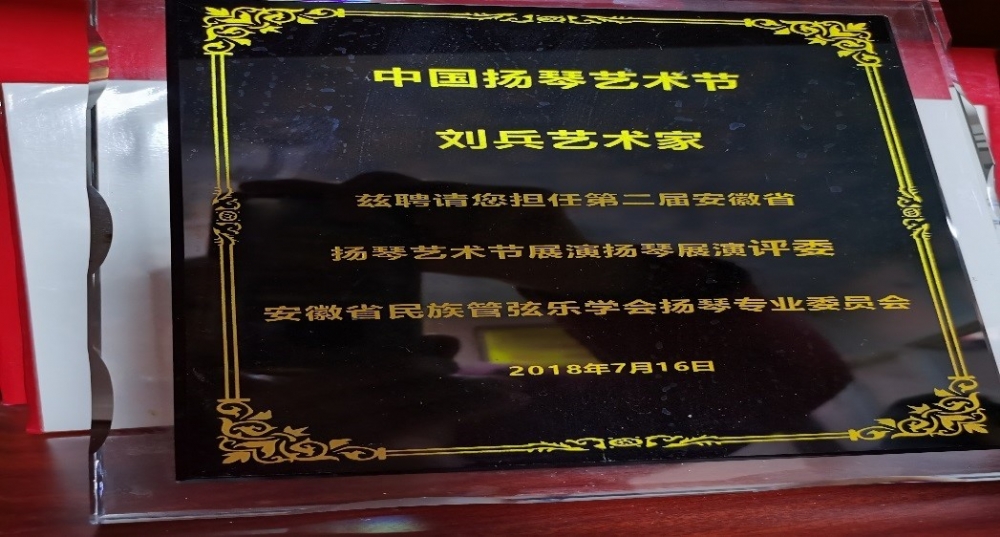 中国扬琴艺术节
刘兵艺术家
兹聘请您担任第二届安徽省
扬琴艺术节展演扬琴展演评委
安徽省民族管弦乐学会扬琴专业委员会
2018年7月16日